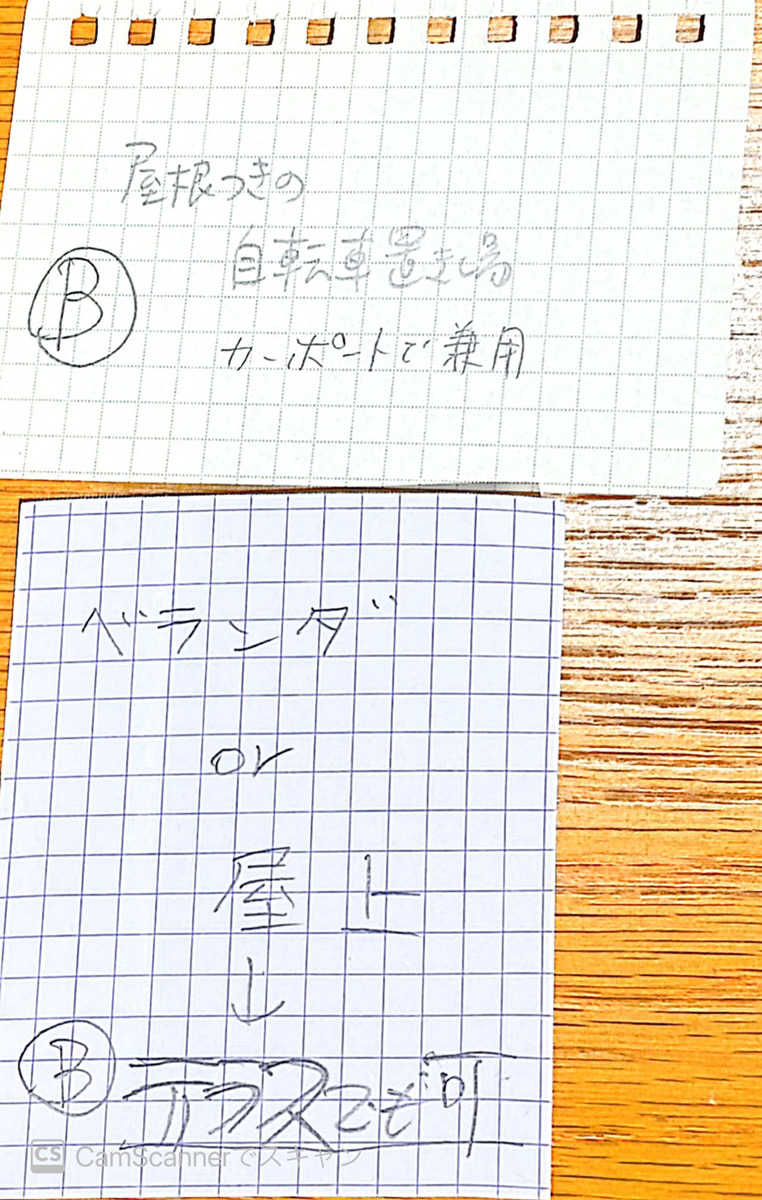 屋根つきの
自転車置き場
Ⓑ
カーポートで兼用
ベランダ
or
屋上
↓
Ⓑ
テラスでも可
CS CamScannerでスキャン